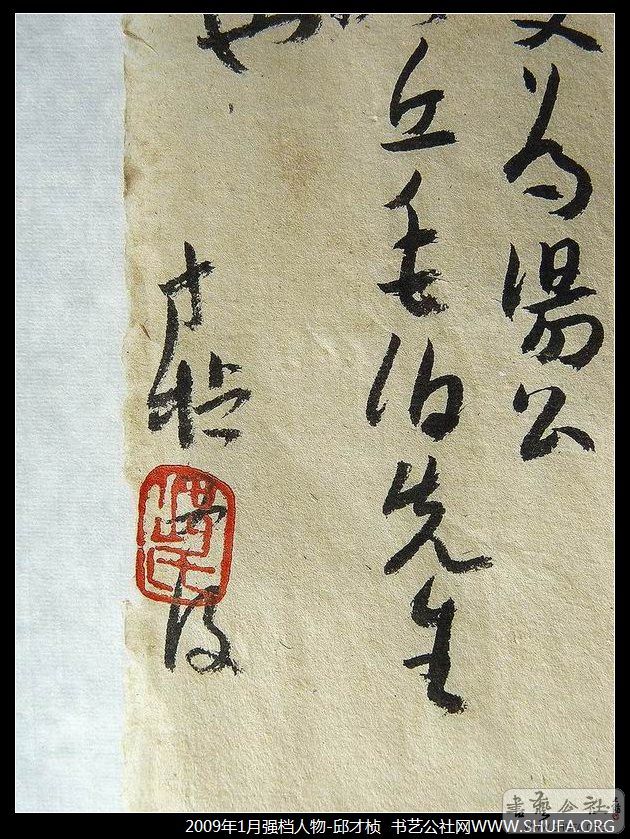 为湯公
丘毛伯先生
才桢
及
書藝公社
2009年1月强档人物-邱才桢 书艺公社网WWW.SHUFA.ORG